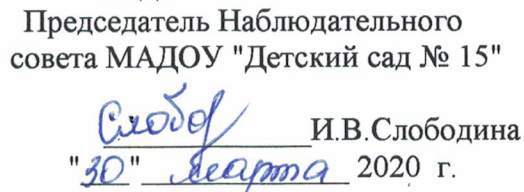 Председатель Наблюдательного
совета МАДОУ "Детский сад № 15"
Слобод И.В.Слободина
"30" марта 2020 г.